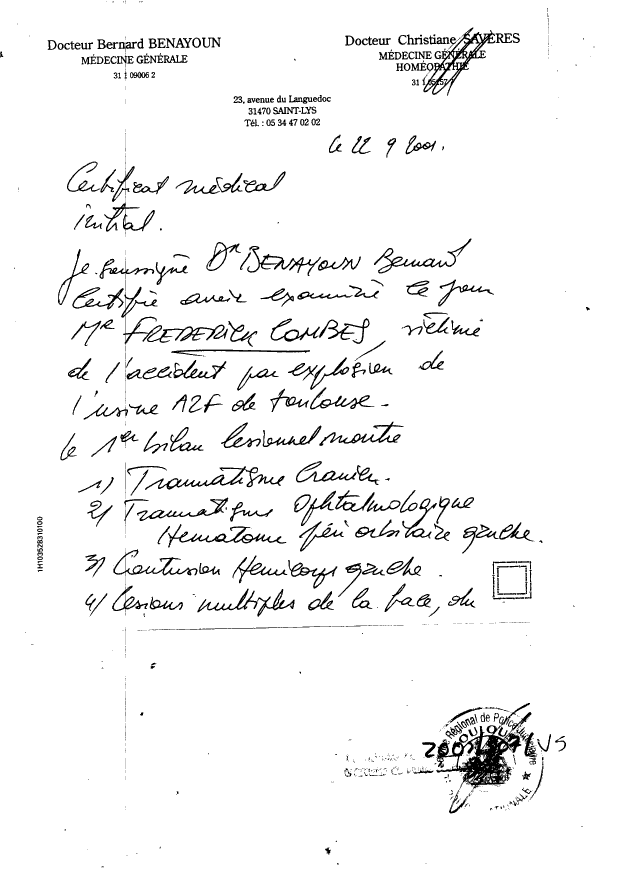 Docteur Bernard BENAYOUN
MÉDECINE GÉNÉRALE
31 1 09006 2
Docteur Christiane SAVÈRES
MÉDECINE GÉNÉRALE
HOMÉOPATHIE
31 1
23, avenue du Languedoc
31470 SAINT-LYS
Tél. : 05 34 47 02 02
le 22 9 2001.
Certificat médical
initial.
Je soussigné Dr BENAYOUN Bernard
Certifie avoir examiné ce jour
Mr FREDERICK COMBES, victime
de l'accident par explosion de
l'usine AZF de toulouse.
le 1er bilan lesionnel montre
1) Traumatisme Cranien.
2) Traumatisme Ophtalmologique
Hematome péri orbitaire gauche.
3) Contusion Hemicorps gauche.
4) Lesions multiples de la face, du
1H103528310100
Régional de Police Judiciaire
TOULOUSE
VS